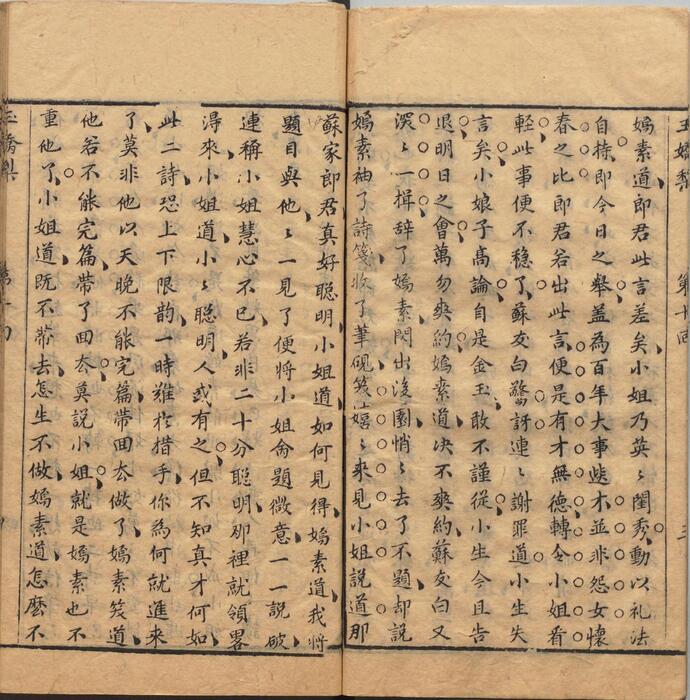 玉嬌梨 第十四
嫣素道郎君此言差矣小姐乃英〻閨秀動以礼法
自持即今日之舉盖為百年大事憐才並非怨女懷
春之比郎君若出此言便是有才無德轉令小姐看
輕此事便不穩了蘇友白驚訝連〻謝罪道小生失
言矣小娘子高論自是金玉敢不謹從小生今且告
退明日之會萬勿爽約嫣素道决不爽約蘇友白又
深〻一揖辞了嫣素閃出後園悄〻去了不題却說
嫣素袖了詩箋收了筆硯笺嬉〻來見小姐說道那
蘇家郎君真好聰明小姐道如何見得嫣素道我將
題目與他〻一見了便將小姐侖題微意一一說破
連称小姐慧心不已若非二十分聰明那裡就領畧
淂來小姐道小〻聰明人或有之但不知真才何如
此二詩恐上下限韵一時難於措手你為何就進來
了莫非他以天晚不能完篇带回去做了嫣素笺道
他若不能完篇带了回去莫說小姐就是嫣素也不
重他了小姐道既不带去怎生不做嫣素道怎麽不
玉嬌梨 第十四